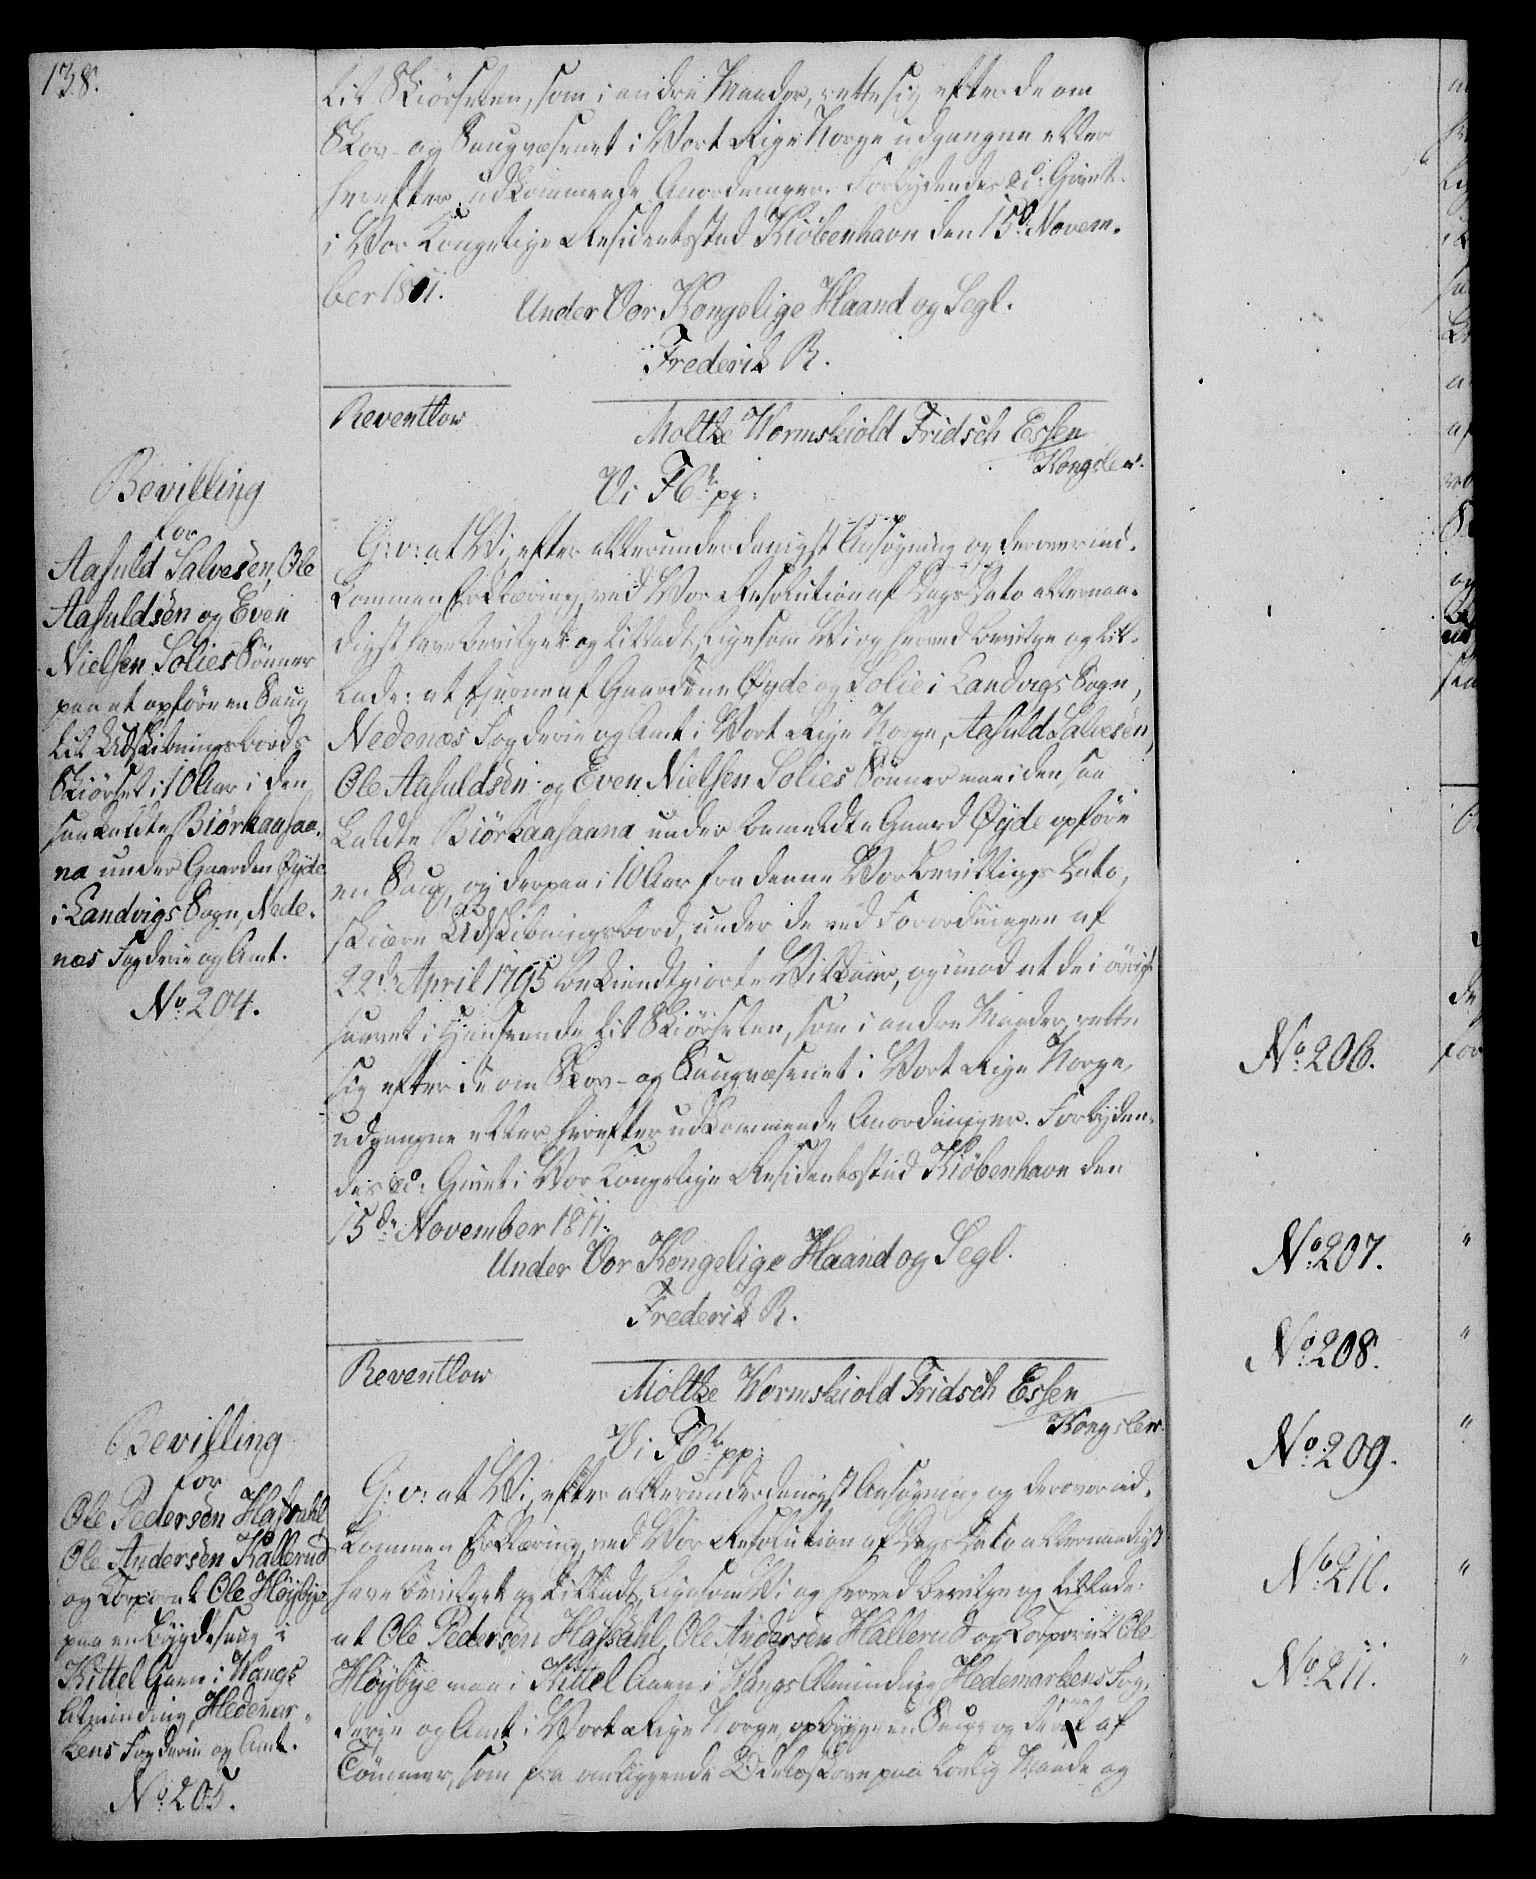 138.
til Skiørselen, som i andre Maader, rette sig efter de om
Skov- og Saugvæsenet i Vort Rige Norge udgangne eller
herefter udkommende Anordninger. Forbydendes &c: Givet
i Vor Kongelige Residentsstad Kiöbenhavn den 15de Novem-
ber 1811.
Under Vor Kongelige Haand og Segl.
Frederik R.
Reventlow
Moltke Wormskiold Fridsch Essen
Kongslew.
Bevilling
for
Aasuld Salvesen, Ole
Aasuldsen og Even
Nielsen Solies Sönner
paa at opføre en Saug
til Udskibningsbords
Skiørsel i 10 Aar i den
saakaldte Biörkaasaa-
na under Gaarden Øyde
i Landvigs Sogn, Nede-
næs Fogderie og Amt.
No. 204.
Vi F6te pp:
G: v: at Vi, efter allerunderdanigst Ansøgning og derover ind-
kommen Erklæring, ved Vor Resolution af Dags Dato allernaa-
digst have bevilget og tilladt, ligesom Vi og herved bevilge og til-
lade: at Eierne af Gaardene Øyde og Solie i Landvigs Sogn,
Nedenæs Fogderie og Amt i Vort Rige Norge, Aasuld Salvesen,
Ole Aasuldsen og Even Nielsen Solies Sönner maae i den saa
kaldte Biörkaasaana under bemeldte Gaard Øyde opføre
en Saug, og derpaa i 10 Aar fra denne Vor Bevillings Dato,
skiære Udskibningsbord, under de ved Forordningen af
22de April 1795 bekiendtgiorte Vilkaar, og imod at de i övrigt
saavel i Henseende til Skiørselen, som i andre Maader, rette
sig efter de om Skov- og Saugvæsenet i Vort Rige Norge,
udgangne eller herefter udkommende Anordninger. Forbyden-
des &c: Givet i Vor Kongelige Residentsstad Kiöbenhavn den
15de November 1811.
Under Vor Kongelige Haand og Segl.
Frederik R.
Reventlow
Moltke Wormskiold Fridsch Essen
Kongslew.
Bevilling
for
Ole Pedersen Hafsahl,
Ole Andersen Hallerud
og Corporal Ole Höybye
paa en Bygdesaug i
Kittel Aaen i Wangs
Alminding, Hedemar-
kens Fogderie og Amt.
No. 205.
Vi F6te pp:
G: v: at Vi, efter allerunderdanigst Ansøgning og derover ind-
kommen Erklæring, ved Vor Resolution af Dags Dato allernaadigst
have bevilget og tilladt, ligesom Vi og herved bevilge og tillade:
at Ole Pedersen Hafsahl, Ole Andersen Hallerud og Corporal Ole
Höybye maae i Kittel Aaen i Wangs Alminding, Hedemarkens Fog-
derie og Amt i Vort Rige Norge, opbygge en Saug og der af
Tömmer, som fra omliggende Odelsskove paa lovlig Maade og
No. 206.
No. 207.
No. 208.
No. 209.
No. 210.
No. 211.